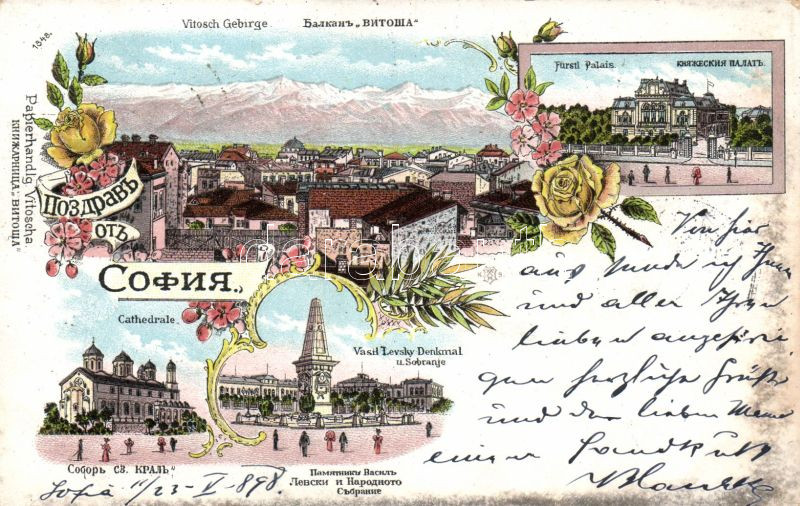 1348.
Vitosch Gebirge.
Балканъ „ВИТОША“
Papierhandlg Vitoscha
КНИЖАРНИЦА „ВИТОША“
Fürstl Palais.
КНЯЖЕСКИЯ ПАЛАТЪ.
Поздравъ
отъ
София.
Cathedrale.
Vasil Levsky Denkmal
u. Sobranje
Соборъ „СВ. КРАЛЬ“
Памятникъ Василъ
Левски и Народното
Събрание
Von hier
aus sende ich Ihnen
und allen Ihren
lieben angehöri
gen herzliche Grüße
und der lieben Mama
einen Handkuß
Sofia 11/23-V-898.